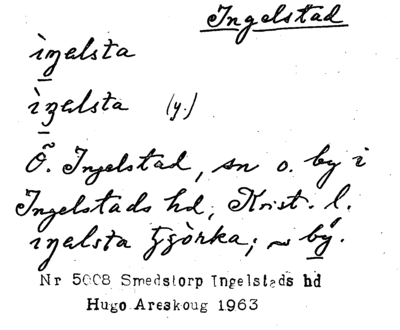 Ingelstad
ìŋelsta
ìŋelsta (y.)
Ö. Ingelstad, sn o. by i
Ingelstads hd, Krist. l.
ìŋelsta ; ~ by.
Nr 5008 Smedstorp Ingelstads hd
Hugo Areskoug 1963